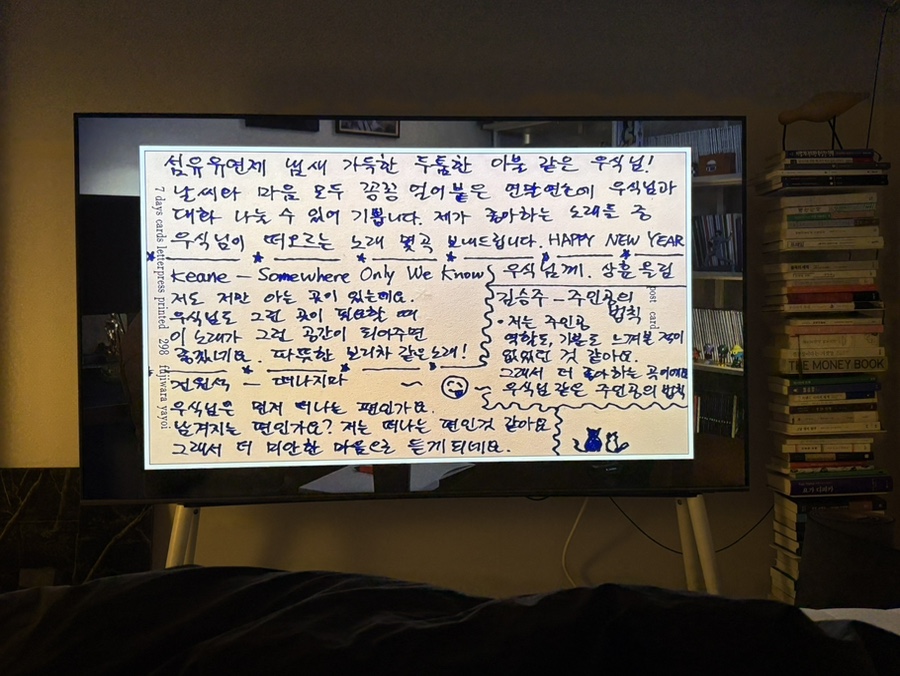 섬유유연제 냄새 가득한 두툼한 이불 같은 우식님!
날씨와 마음 모두 꽁꽁 얼어붙은 연말연초에 우식님과
대화 나눌 수 있어 기쁩니다. 제가 좋아하는 노래들 중
우식님이 떠오르는 노래 몇곡 보내드립니다. HAPPY NEW YEAR
우식님께. 상훈 올림
Keane - Somewhere Only We Know
저도 저만 아는 곳이 있는데요.
우식님도 그런 곳이 필요할 때
이 노래가 그런 공간이 되어주면
좋겠네요. 따뜻한 보리차 같은 노래!
김승주 - 주인공의 법칙
·저는 주인공
역할도, 기분도 느껴본 적이
없었던 것 같아요.
그래서 더 좋아하는 곡이에요
우식님 같은 주인공의 법칙
전원석 - 떠나지마
우식님은 먼저 떠나는 편인가요.
남겨지는 편인가요? 저는 떠나는 편인것 같아요
그래서 더 미안한 마음으로 듣게 되네요.
7 days cards letterpress printed 298 fujiwara yayoi
post card
THE MONEY BOOK